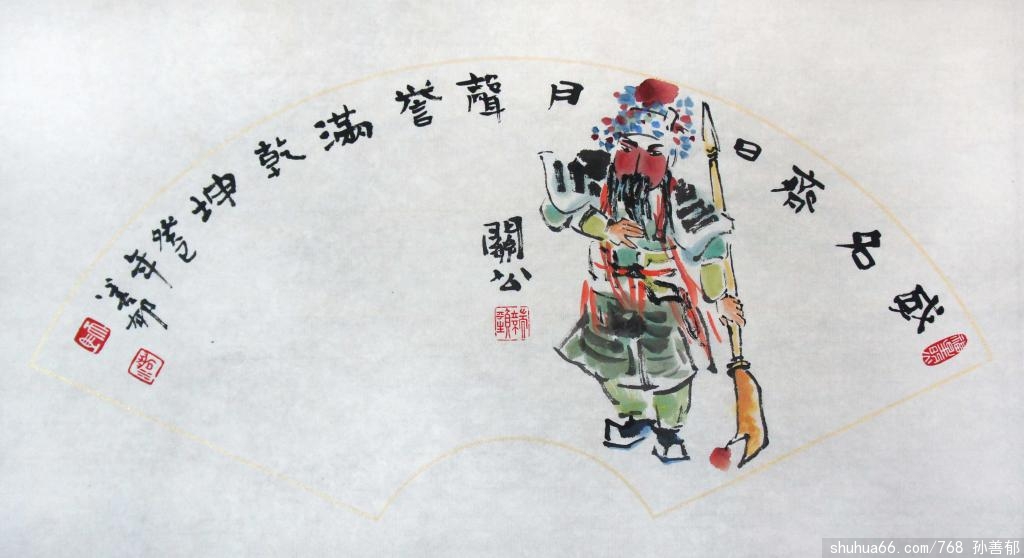 威名齊日月聲譽滿乾坤
癸巳年善郁
關公
shuhua66.com/768 孙善郁